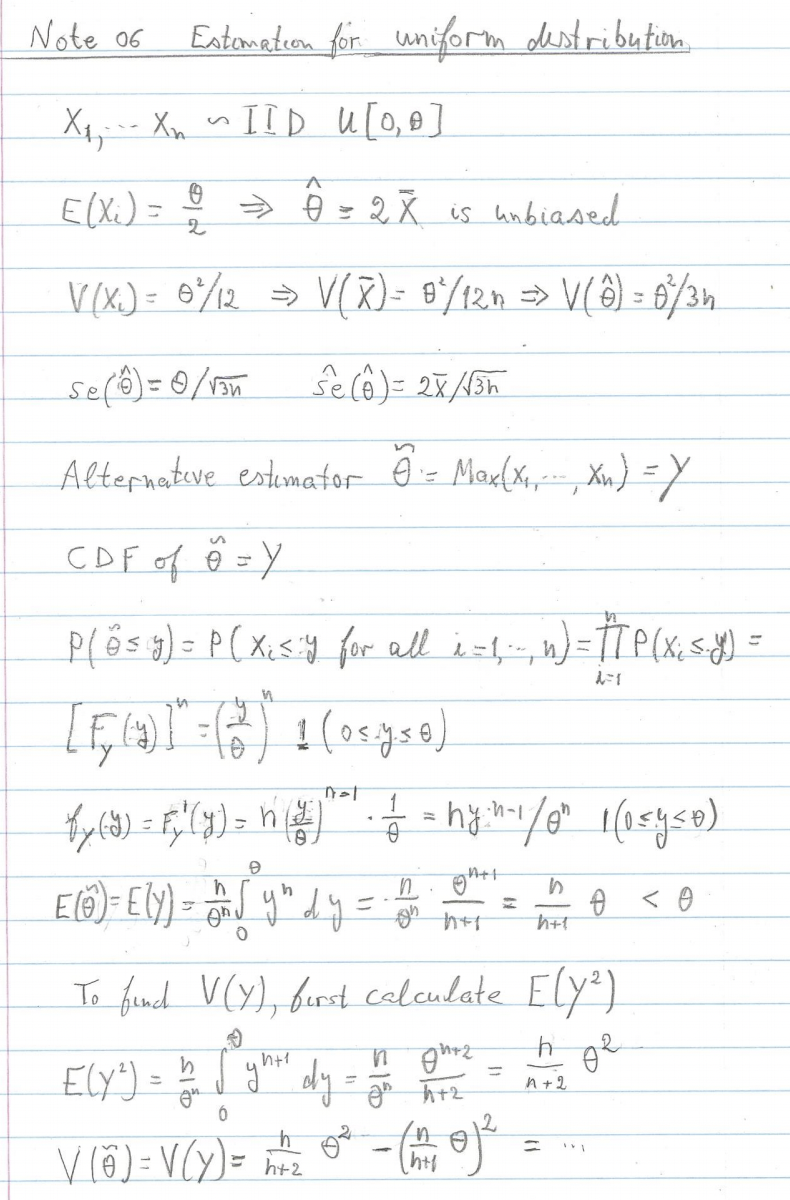 Note 06 Estimation for uniform distribution
X₁, ... Xₙ ~ IID U[0, θ]
E(Xᵢ) = θ/2 ⇒ θ̂ = 2X̄ is unbiased
V(Xᵢ) = θ²/12 ⇒ V(X̄) = θ²/12n ⇒ V(θ̂) = θ²/3n
se(θ̂) = θ/√3n    ŝe(θ̂) = 2x̄/√3n
Alternative estimator θ̃ = Max(X₁, ..., Xₙ) = Y
CDF of θ̃ = Y
P(θ̃ ≤ y) = P(Xᵢ ≤ y for all i = 1, .., n) = ∏ᵢ₌₁ⁿ P(Xᵢ ≤ y) =
[F_y(y)]ⁿ = (y/θ)ⁿ 1(0 ≤ y ≤ θ)
f_Y(y) = F_Y'(y) = n(y/θ)ⁿ⁻¹ · 1/θ = ny^{n-1}/θⁿ 1(0 ≤ y ≤ θ)
E(θ̃) = E(Y) = n/θⁿ ∫₀^θ yⁿ dy = n/θⁿ · θⁿ⁺¹/n+1 = n/n+1 θ < θ
To find V(Y), first calculate E(Y²)
E(Y²) = n/θⁿ ∫₀^θ yⁿ⁺¹ dy = n/θⁿ θⁿ⁺²/n+2 = n/n+2 θ²
V(θ̃) = V(Y) = n/n+2 θ² − (n/n+1 θ)² = ...